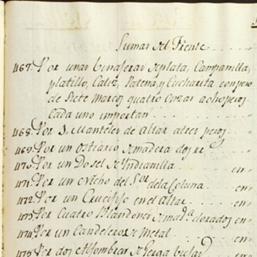 Sumas del Frente
1167. Por unas binageras de plata, Campanilla,
platillo, Caliz, Patena, y Cucharita con peso
de Siete Marcos quatro onzas a ocho pesos
Cada uno importan
1168. Por 3. Manteles de altar a tres pesos
1169. Por un ostiario de madera dos rs
1170. Por un Dosel de Indianilla en
1171. Por un nicho del Sor. de la Coluna en
1172. Por un Crucifixo en el altar en
1173. Por Quatro Blandones de mada. dorados en
1174. Por un Candelero de Metal en
1175. Por dos Alfombras de Gerga